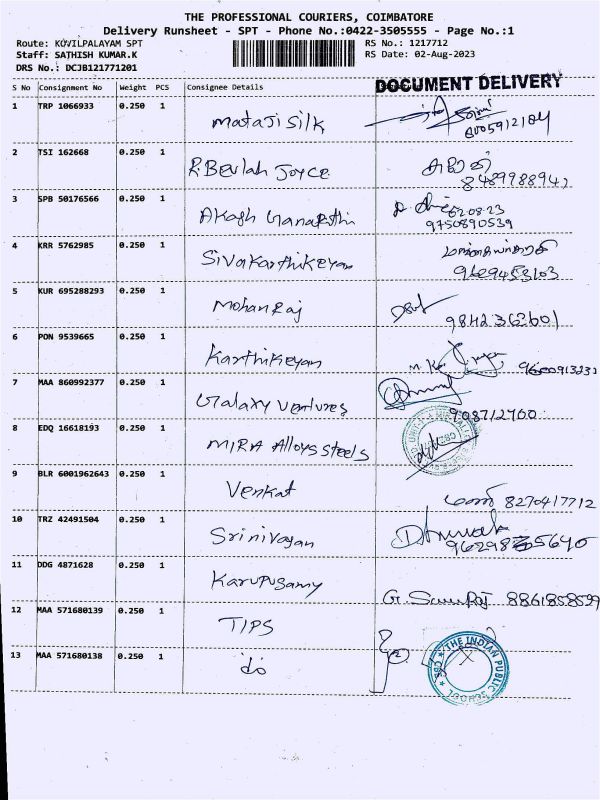 THE PROFESSIONAL COURIERS, COIMBATORE
Delivery Runsheet - SPT - Phone No.:0422-3505555 - Page No.:1
Route: KOVILPALAYAM SPT
RS No.: 1217712
Staff: SATHISH KUMAR.K
RS Date: 02-Aug-2023
DRS No.: DCJB121771201
DOCUMENT DELIVERY
S No Consignment No Weight PCS Consignee Details
1 TRP 1066933 0.250 1 Mataji Silk
2 TSI 162668 0.250 1 R. Beulah Joyce
3 SPB 50176566 0.250 1 Akash Ganapathi
9750890539
4 KRR 5762985 0.250 1 Sivakarthikeyan
9629453103
5 KUR 695288293 0.250 1 Mohanraj
9842362601
6 PON 9539665 0.250 1 Karthikeyan
7 MAA 860992377 0.250 1 Galaxy Ventures
8 EDQ 16618193 0.250 1 MIRA Alloys Steels
9 BLR 6001962643 0.250 1 Venkat
8270417712
10 TRZ 42491504 0.250 1 Srinivasan
11 DDG 4871628 0.250 1 Karupusamy
8861858599
12 MAA 571680139 0.250 1 TIPS
13 MAA 571680138 0.250 1 do
THE INDIAN PUBLIC SCHOOL ★ CBE ★